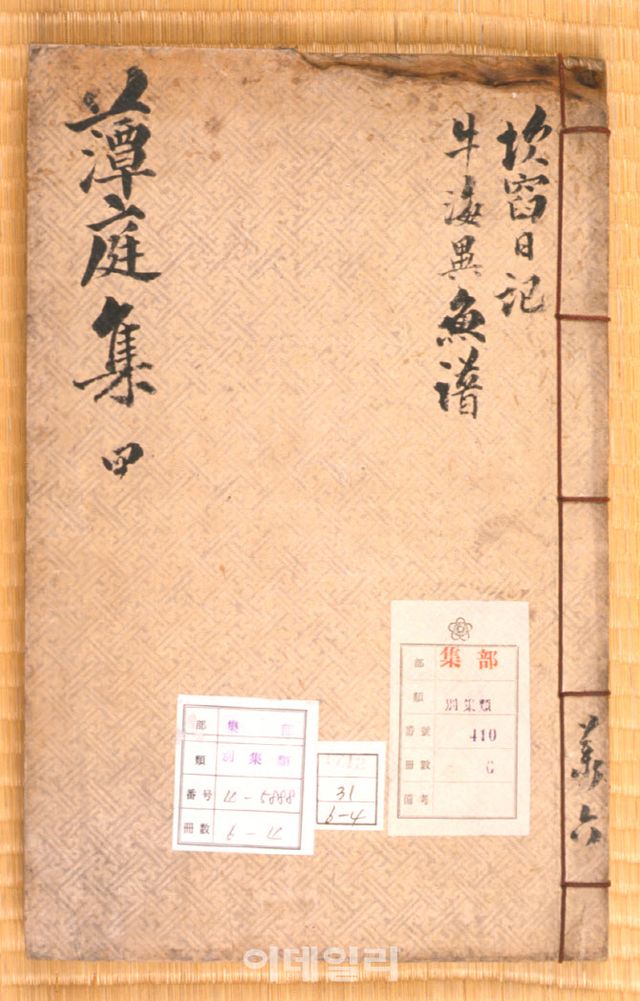 坎窞日記
牛海異魚譜
藫庭集 甲
共六
部 集部
類 別集類
番號 410
冊數 6
備考
部
類 別集類
番号
冊數
31
6-4
이데일리